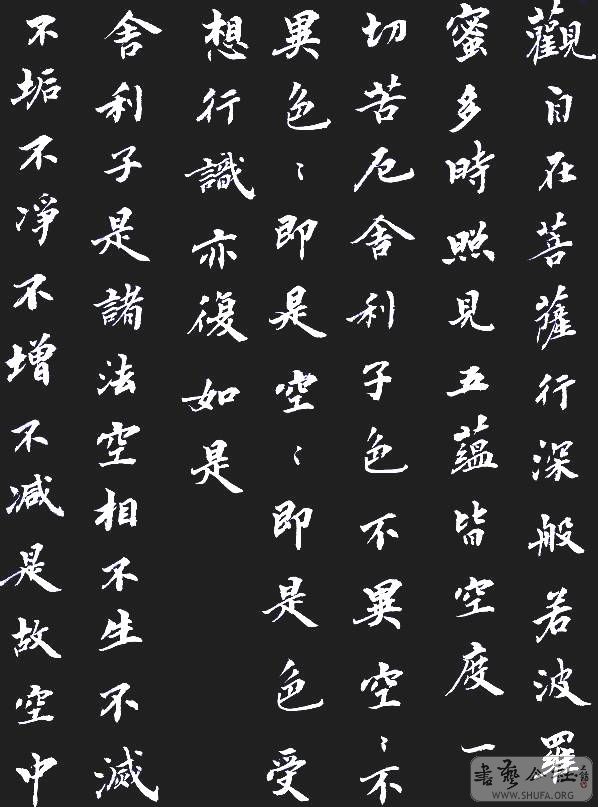 觀自在菩薩行深般若波羅
蜜多時照見五蘊皆空度一
切苦厄舍利子色不異空〻不
異色〻即是空〻即是色受
想行識亦復如是
舍利子是諸法空相不生不滅
不垢不淨不增不减是故空中
WWW.SHUFA.ORG